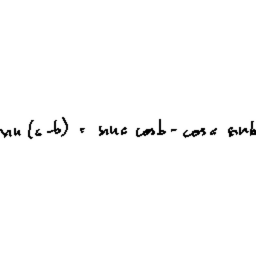 sin (a - b) = sin a cos b - cos a sin b